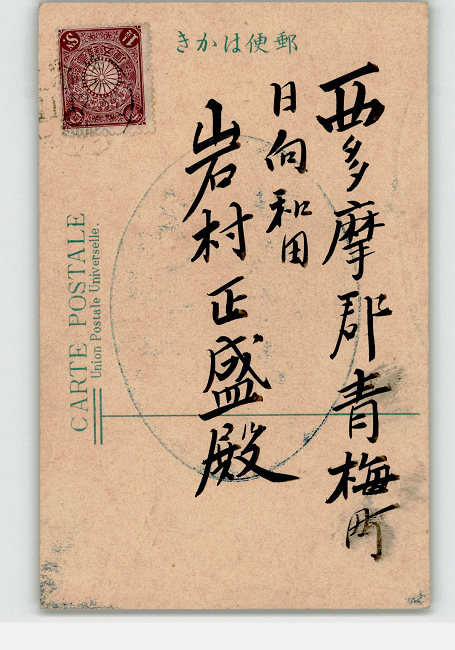 郵便はかき
西多摩郡青梅町
日向和田
岩村正盛殿
CARTE POSTALE
Union Postale Universelle.